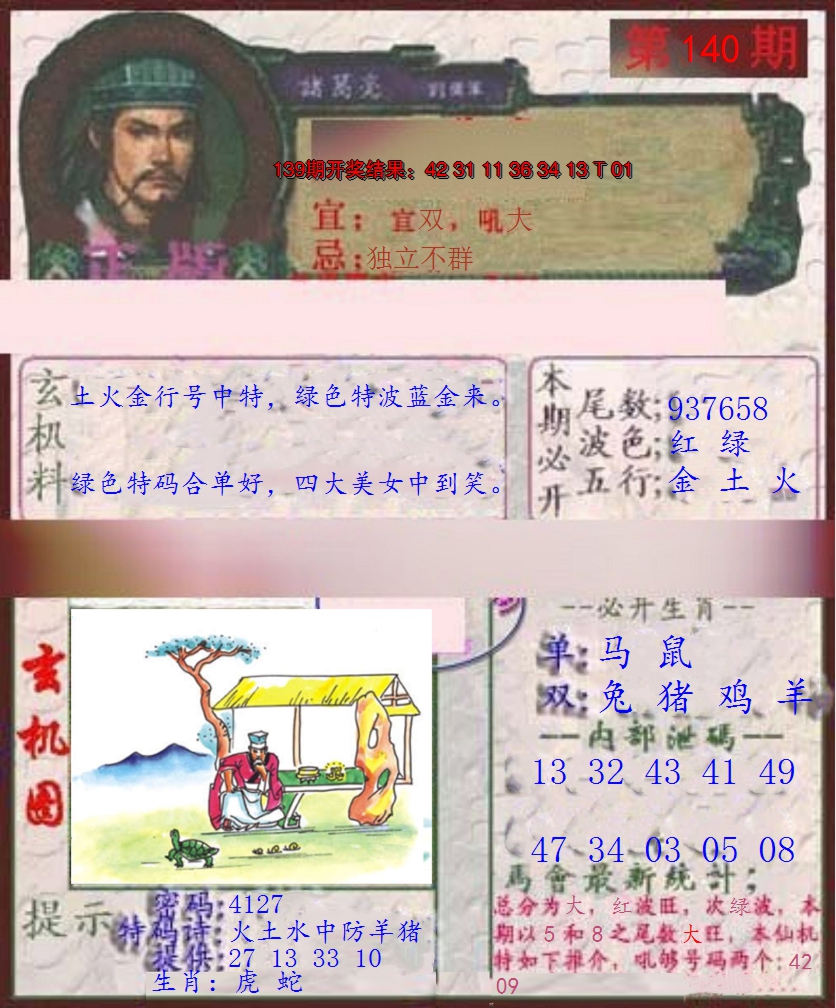 第 140 期
諸葛亮
139期开奖结果：42 31 11 36 34 13 T 01
宜；宜双，吼大
忌；独立不群
正版
玄机料
土火金行号中特，绿色特波蓝金来。
绿色特码合单好，四大美女中到笑。
本期必开
尾数;937658
波色;红 绿
五行;金 土 火
玄机图
--必开生肖--
单:马 鼠
双:兔 猪 鸡 羊
--内部泄碼--
13 32 43 41 49
47 34 03 05 08
馬會最新統計;
总分为大，红波旺，次绿波，本
期以5和8之尾数大旺，本仙机
特如下推介，吼够号码两个:42
09
提示
密码:4127
特码诗:火土水中防羊猪
提供:27 13 33 10
生肖：虎 蛇